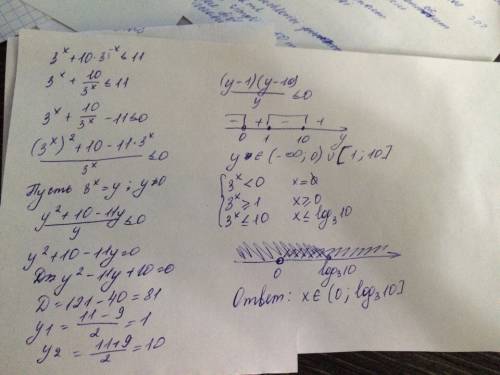 3^x + 10·3^-x ≤ 11
3^x + 10/3^x ≤ 11
3^x + 10/3^x - 11 ≤ 0
((3^x)^2 + 10 - 11·3^x)/3^x ≤ 0
Пусть 3^x = y; y≠0
(y^2 + 10 - 11y)/y ≤ 0
y^2 + 10 - 11y = 0
y^2 - 11y + 10 = 0
D = 121 - 40 = 81
y1 = (11 - 9)/2 = 1
y2 = (11+9)/2 = 10
(y-1)(y-10)/y ≤ 0
- + - +
0 1 10 y
y ∈ (-∞; 0) ∪ [1; 10]
3^x < 0
3^x ≥ 1 x ≥ 0
3^x ≤ 10 x ≤ log3 10
0 log3 10
Ответ: x ∈ (0; log3 10]